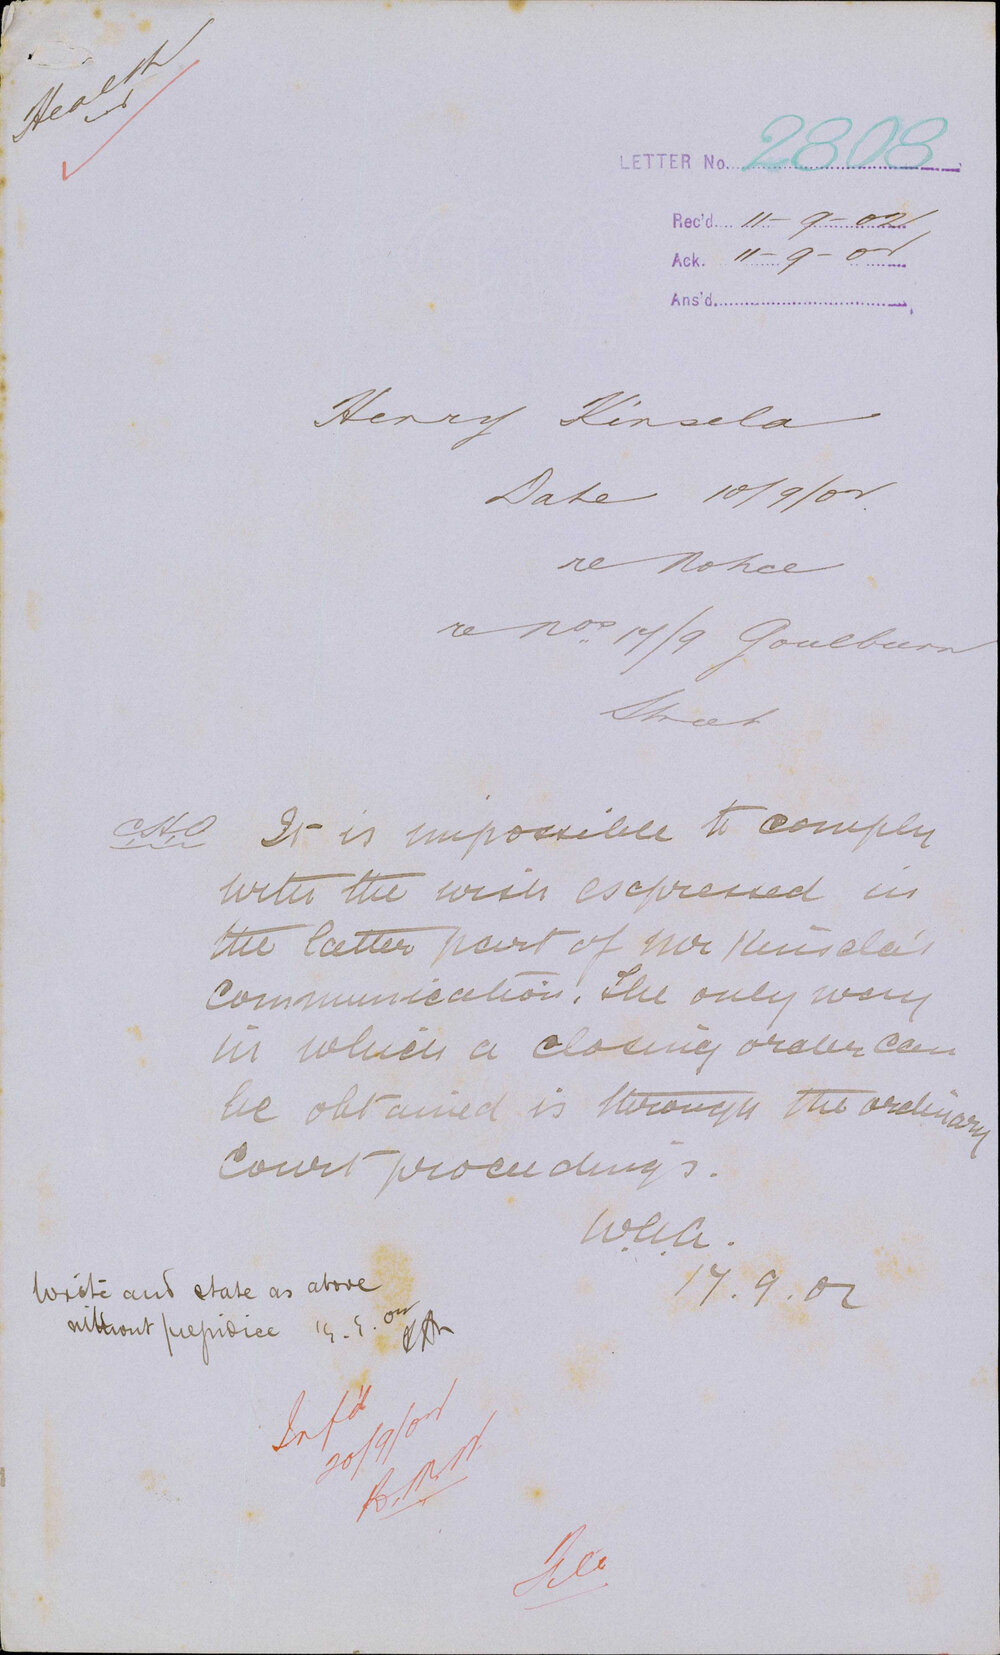 Health
LETTER No. 2808
Rec'd 11-9-02
Ack. 11-9-02
Ans'd.
Henry Kinsela
Date 10/9/02
re Notice
re Nos 17/9 Goulburn
Street
C.H.O It is impossible to comply
with the wish expressed in
the latter part of Mr Kinsela's
communication. The only way
in which a closing order can
be obtained is through the ordinary
Court proceedings.
W.G.A.
17.9.02
Write and state as above
without prejudice 19.9.02
Inf'd
20/9/02
File